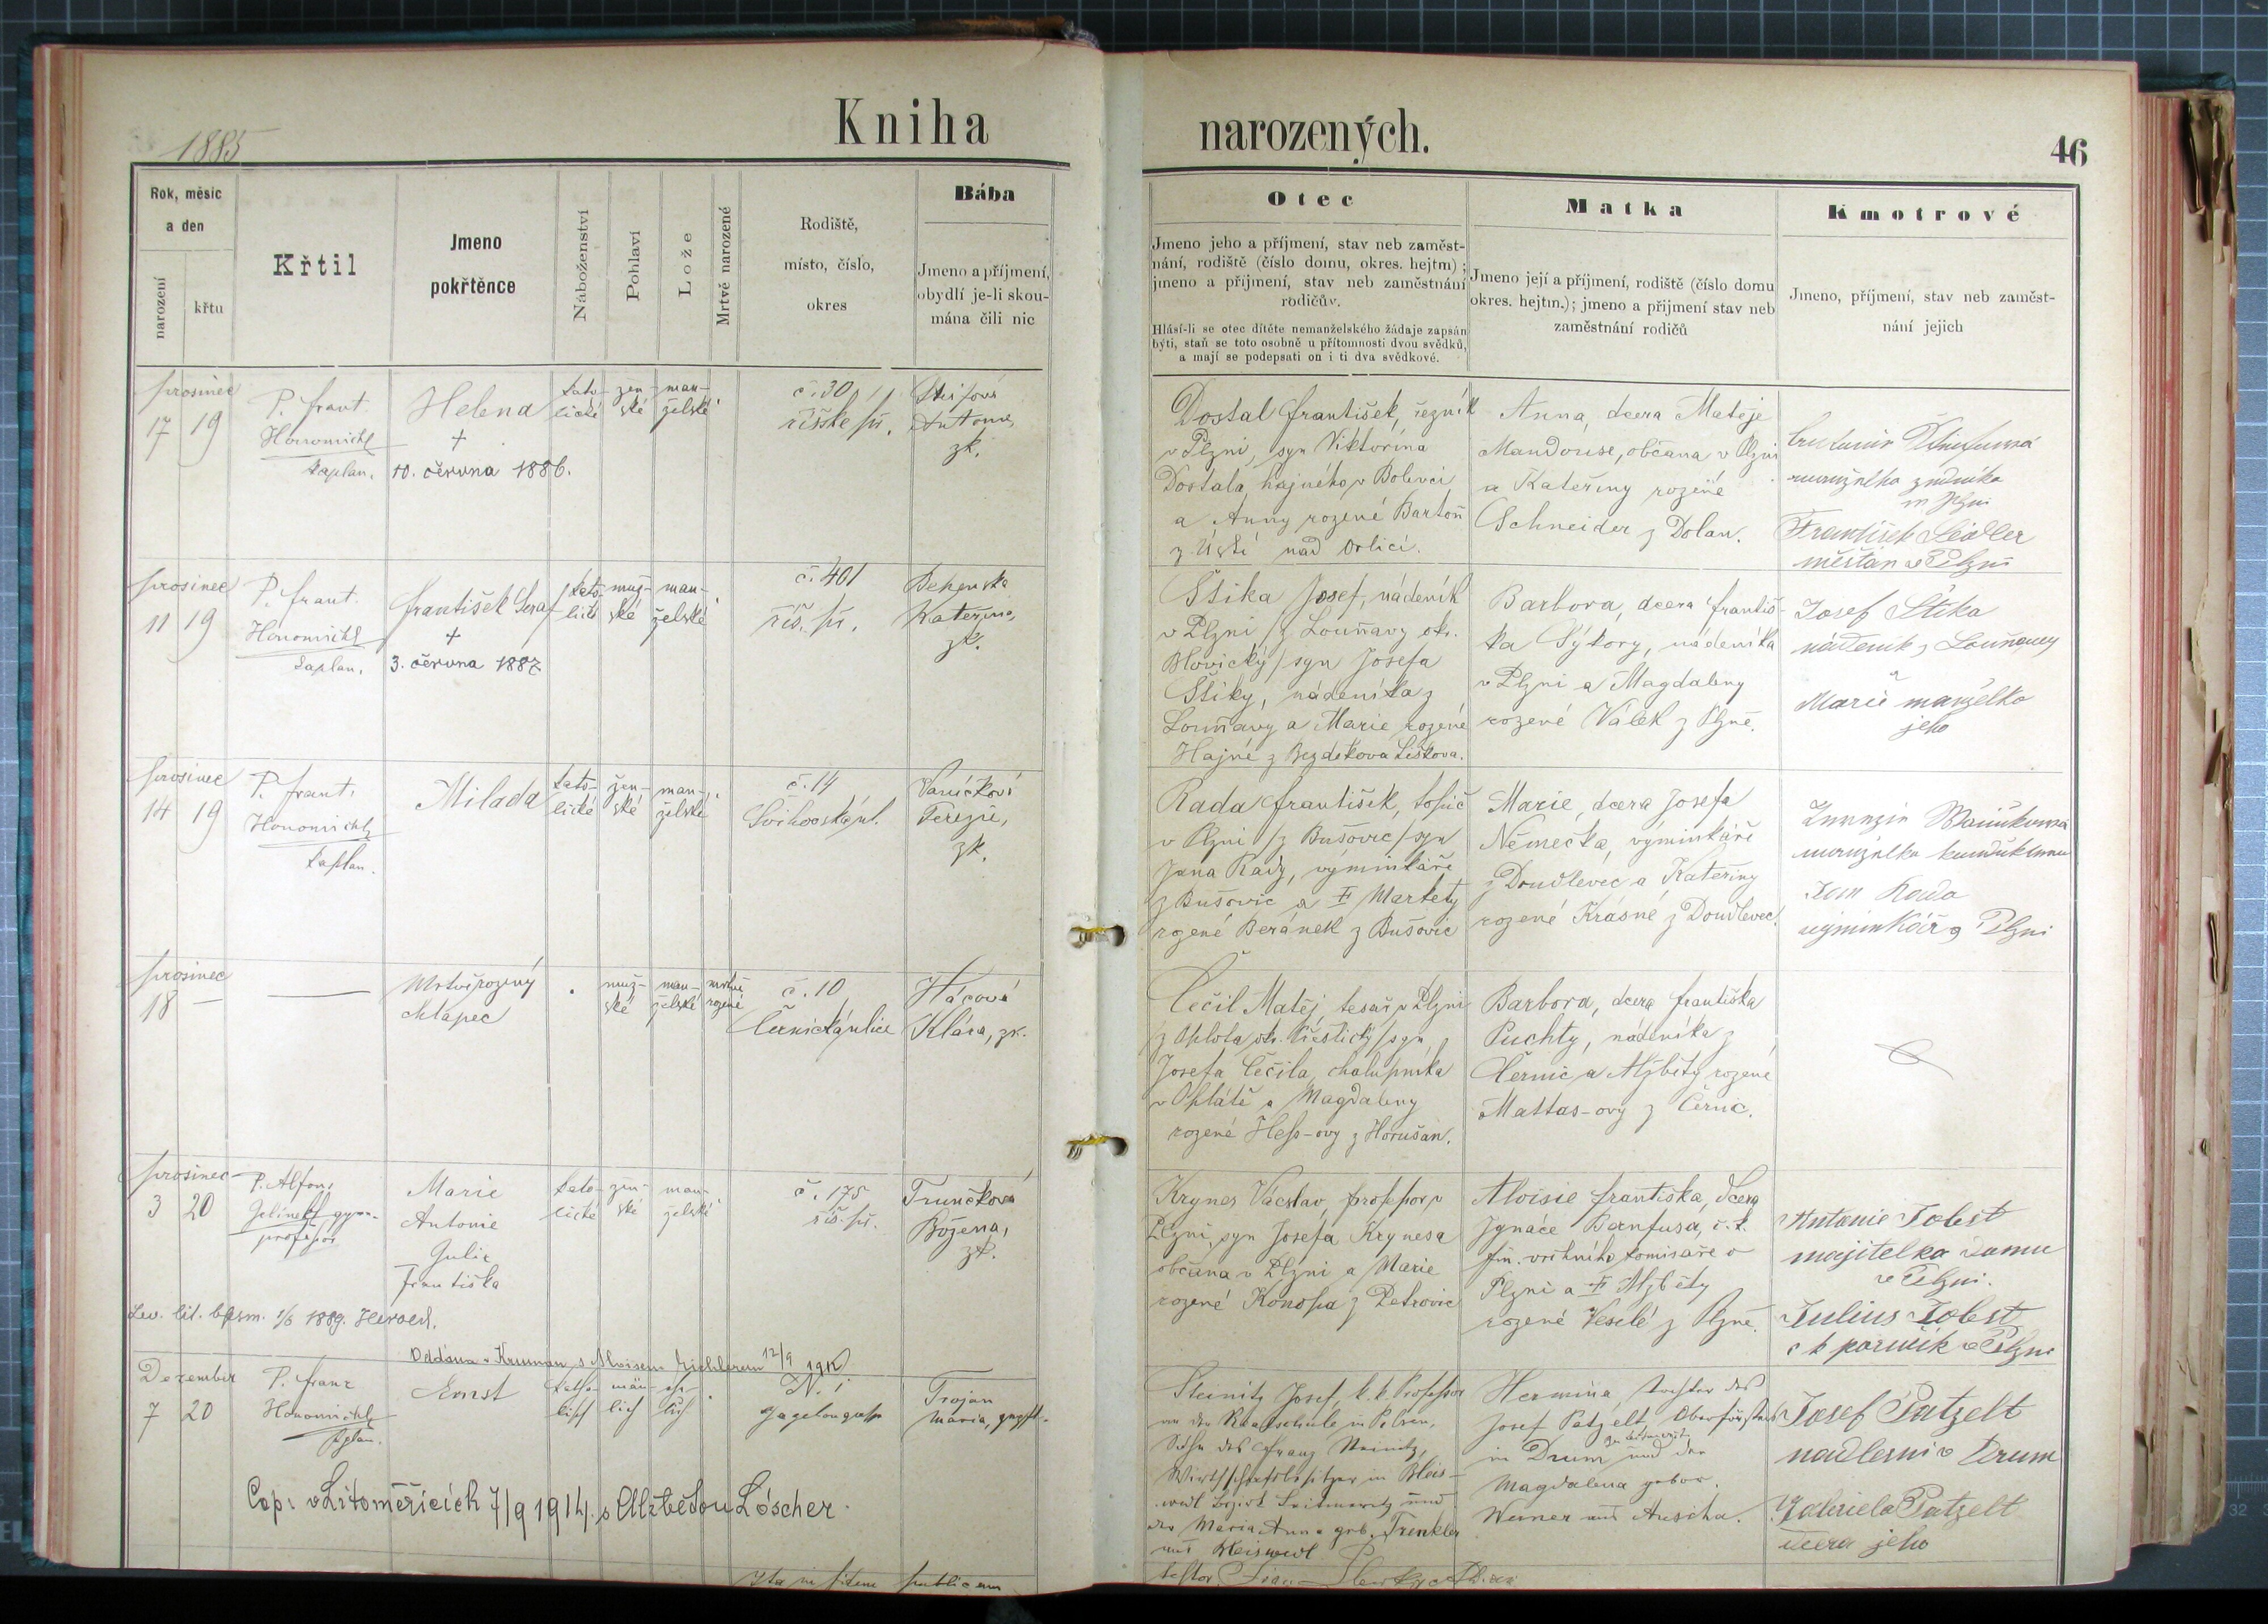 Kniha
narozených.
1885
46
Rok, měsíc
a den
narození
křtu
Křtil
Jmeno
pokřtěnce
Náboženství
Pohlaví
Lože
Mrtvě narozené
Rodiště,
místo, číslo,
okres
Bába
Jmeno a příjmení,
obydlí je-li skou-
mána čili nic
Otec
Jmeno jeho a příjmení, stav neb zaměst-
nání, rodiště (číslo domu, okres. hejtm) ;
jmeno a příjmení, stav neb zaměstnání
rodičův.
Hlásí-li se otec dítěte nemanželského žádaje zapsán
býti, staň se toto osobně u přítomnosti dvou svědků,
a mají se podepsati on i ti dva svědkové.
Matka
Jmeno její a příjmení, rodiště (číslo domu
okres. hejtm.); jmeno a příjmení stav neb
zaměstnání rodičů
Kmotrové
Jmeno, příjmení, stav neb zaměst-
nání jejich
prosinec
17 19
P. Frant.
Honomichl
kaplan.
Helena
+
10. června 1886.
kato-
lické
žen-
ské
man-
želské
č. 30
říšské př.
Antonie
zk.
Dostal František, řezník
v Plzni, syn Viktorina
Dostala, hajného v Bolevci
a Anny rozené Bartoň
z Ústí nad Orlicí.
Anna, dcera Matěje
Mandouse, občana v Plzni
a Kateřiny rozené
Schneider z Dolan.
manželka zedníka
v Plzni
František Seidler
měšťan v Plzni
prosinec
11 19
P. Frant.
Honomichl
kaplan.
František Seraf
+
3. června 1887
kato-
lické
muž-
ské
man-
želské
č. 401
říš. př.
Kateřina,
zk.
Štika Josef, nádeník
v Plzni /z Louňavy okr.
Blovický/ syn Josefa
Štiky, nádeníka z
Louňavy a Marie rozené
Hajné z Bezděkova Liškova.
Barbora, dcera Františ-
ka Sýkory, nádeníka
v Plzni a Magdaleny
rozené Válek z Plzně.
Josef Štika
nádeník z Louňavy
a
Marie manželka
jeho
prosinec
14 19
P. Frant.
Honomichl
kaplan.
Milada
kato-
lické
žen-
ské
man-
želské
č. 14
Švihovská ul.
Vaničková
Terezie,
zk.
Rada František, topič
v Plzni /z Bušovic/ syn
Jana Rady, výminkáře
z Bušovic a † Markety
rozené Beránek z Bušovic
Marie, dcera Josefa
Němečka, výminkáře
z Doudlevec a Kateřiny
rozené Krásné z Doudlevec.
manželka konduktera
Jan Rada
výminkář z Plzni
prosinec
18 —
Mrtvě rozený
chlapec
muž-
ské
man-
želské
mrtvě
rozené
č. 10
Černická ulice
Hácová
Klára, zk.
Čečil Matěj, tesař v Plzni
z Oplota okr. Přestický / syn
Josefa Čečila, chalupníka
v Oplotě a Magdaleny
rozené Hess-ovy z Horušan.
Barbora, dcera Františka
Puchty, nádeníka z
Černic a Alžběty rozené
Mattas-ovy z Černic.
prosinec
3 20
P. Alfons
Jelínek gymn.
professor
Marie
Antonie
Julie
Františka
kato-
lické
žen-
ské
man-
želské
č. 175
říš. př.
Trunčková
Božena,
zk.
Krynes Václav, professor v
Plzni, syn Josefa Krynesa
občana v Plzni a Marie
rozené Konopa z Petrovic
Aloisie Františka, dcera
Ignáce Bernfusa, c. k.
fin. vrchního komisaře v
Plzni a † Alžběty
rozené Veselé z Plzně.
Antonie Jobst
majitelka domu
v Plzni.
Julius Jobst
c k poručík v Plzni
1889.
Oddána v s Aloisem 12/9 1912
Dezember
7 20
P. Franz
Honomichl
Kplan.
Ernst
katho-
lisch
män-
lich
ehe-
lich
N. 1
Trojan
Maria, geprft.
Steinitz Josef, k. k. Professor
an der Realschule in Pilsen,
Sohn des Franz Steinitz,
Wirthschaftsbesitzer in Bleis-
wedl Bezirk Leitmeritz und
der Maria Anna geb. Trenkler
aus Bleiswedl
Hermina, Tochter des
Josef Patzelt, Oberförsters
in Drum und der
Magdalena gebor.
Werner aus Auscha.
Josef Patzelt
nadlesní v Drum
Gabriela Patzelt
dcera jeho
Cop. v Litoměřicích 7/9 1914. s Alžbětou Löscher.